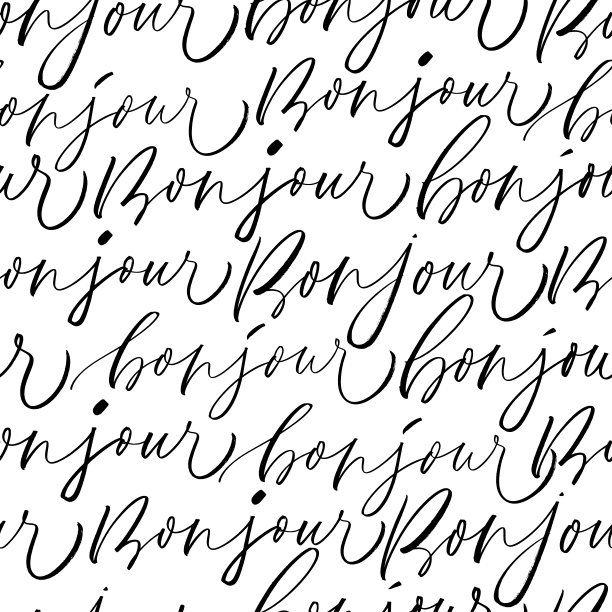 onjour Bonjour Bo
onjour Bonjour bo
ur Bonjour bonjou
onjour Bonjour B
ur bonjour bonjou
onjour bonjour Bo
ur Bonjour Bonjou